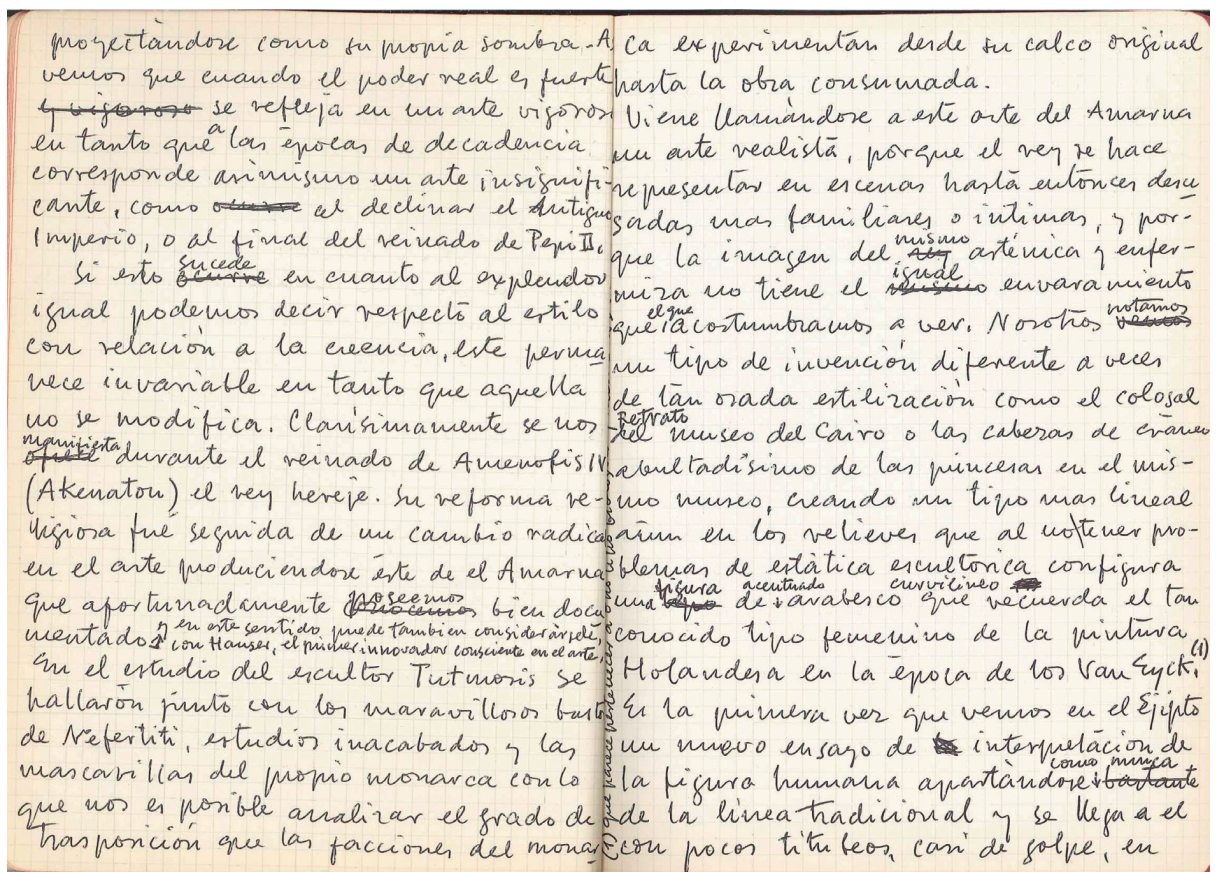 proyectàndose como su propia sombra. A
vemos que cuando el poder real es fuerte
y vigoroso se refleja en un arte vigoroso
en tanto que a las épocas de decadencia
corresponde asimismo un arte insignifi-
cante, como ocurre al declinar el Antiguo
Imperio, o al final del reinado de Pepi II.
Si esto ocurre sucede en cuanto al explendor
igual podemos decir respecto al estilo
con relación a la creencia, este perma
nece invariable en tanto que aquella
no se modifica. Clarísimamente se nos
manifiesta durante el reinado de Amenofis IV
(Akenaton) el rey hereje. Su reforma re-
ligiosa fué seguida de un cambio radical
en el arte produciendose éste de el Amarna
que afortunadamente conocemos poseemos bien docu
mentado y en este sentido puede tambien considerársele,
con Hauser, el primer innovador consciente en el arte,
En el estudio del escultor Tutmosis se
hallarón junto con los maravillosos bustos
de Nefertiti, estudios inacabados y las
mascarillas del propio monarca con lo
que nos es posible analizar el grado de
trasposición que las facciones del monar
(1) que parece pertenecer a
ca experimentan desde su calco original
hasta la obra consumada.
Viene llamàndose a este arte del Amarna
un arte realista, porque el rey se hace
representar en escenas hasta entonces desu
sadas mas familiares o intimas, y por-
que la imagen del rey mismo asténica y enfer-
miza no tiene el mismo igual envaramiento
que el que acostumbramos a ver. Nosotros vemos notamos
un tipo de invención diferente a veces
de tan osada estilización como el colosal
retrato del museo del Cairo o las cabezas de cráneo
abultadísimo de las princesas en el mis-
mo museo, creando un tipo mas lineal
aùn en los relieves que al no tener pro-
blemas de estàtica escultórica configura
una tipo figura de acentuado arabesco curvilineo que recuerda el tan
conocido tipo femenino de la pintura
Holandesa en la época de los Van Eyck. (1)
Es la primera vez que vemos en el Ejipto
un nuevo ensayo de interpretación de
la figura humana apartàndose bastante como nunca
de la linea tradicional y se llega a el
con pocos titubeos, casi de golpe, en